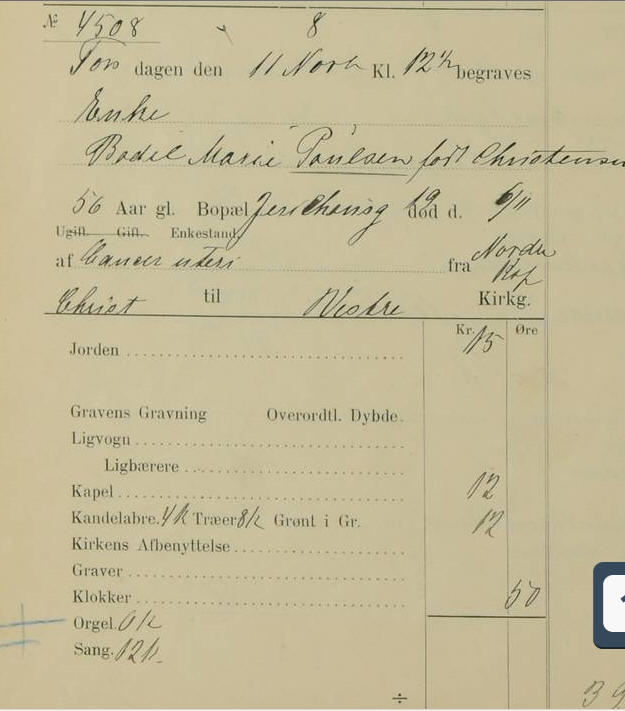 № 4508 8
Tors dagen den 11 Novb Kl. 12½ begraves
Enke
Bodil Marie Poulsen født Christensen
56 Aar gl. Bopæl Jerichausg 19 død d. 6/11
Ugift. Gift. Enkestand.
af Cancer uteri fra Nordre Kap
Christ til Vestre Kirkg.
Kr. Øre
Jorden 15
Gravens Gravning Overordtl. Dybde.
Ligvogn
Ligbærere
Kapel 12
Kandelabre. 4k Træer 8k Grønt i Gr. 12
Kirkens Afbenyttelse
Graver
Klokker 50
Orgel. 6k
Sang. 12k.
÷ 39